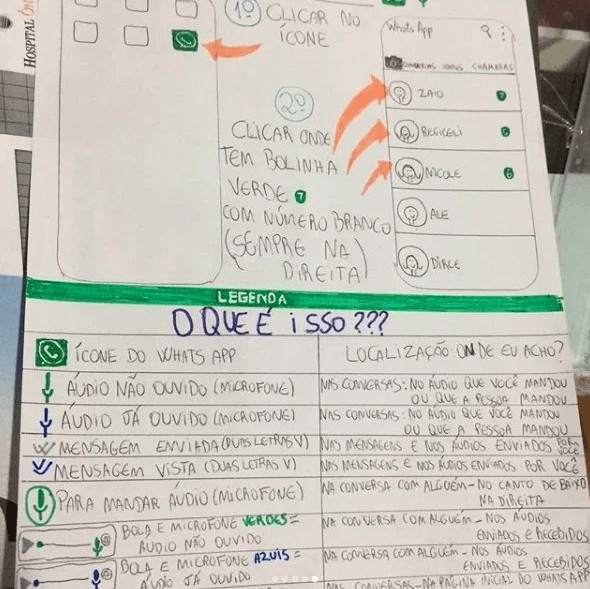 HOSPITAL
1º CLICAR NO
ÍCONE
Whats App
CONVERSAS STATUS CHAMADAS
ZAIO 7
REGICELI
NICOLE 6
ALE
DIRCE
2º
CLICAR ONDE
TEM BOLINHA
VERDE 7
COM NÚMERO BRANCO
(SEMPRE NA
DIREITA)
LEGENDA
O QUE É ISSO???
ÍCONE DO WHATS APP
LOCALIZAÇÃO: ONDE EU ACHO?
ÁUDIO NÃO OUVIDO (MICROFONE)
NAS CONVERSAS: NO ÁUDIO QUE VOCÊ MANDOU
OU QUE A PESSOA MANDOU
ÁUDIO JÁ OUVIDO (MICROFONE)
NAS CONVERSAS: NO ÁUDIO QUE VOCÊ MANDOU
OU QUE A PESSOA MANDOU
MENSAGEM ENVIADA (DUAS LETRAS V)
NAS MENSAGENS E NOS ÁUDIOS ENVIADOS POR VOCÊ
MENSAGEM VISTA (DUAS LETRAS V)
NAS MENSAGENS E NOS ÁUDIOS ENVIADOS POR VOCÊ
PARA MANDAR ÁUDIO (MICROFONE)
NA CONVERSA COM ALGUÉM - NO CANTO DE BAIXO
NA DIREITA
BOLA E MICROFONE VERDES =
ÁUDIO NÃO OUVIDO
NA CONVERSA COM ALGUÉM - NOS ÁUDIOS
ENVIADOS E RECEBIDOS
BOLA E MICROFONE AZUIS =
ÁUDIO JÁ OUVIDO
NA CONVERSA COM ALGUÉM - NOS ÁUDIOS
ENVIADOS E RECEBIDOS
NAS CONVERSAS - NA PÁGINA INICIAL DO WHATSAPP